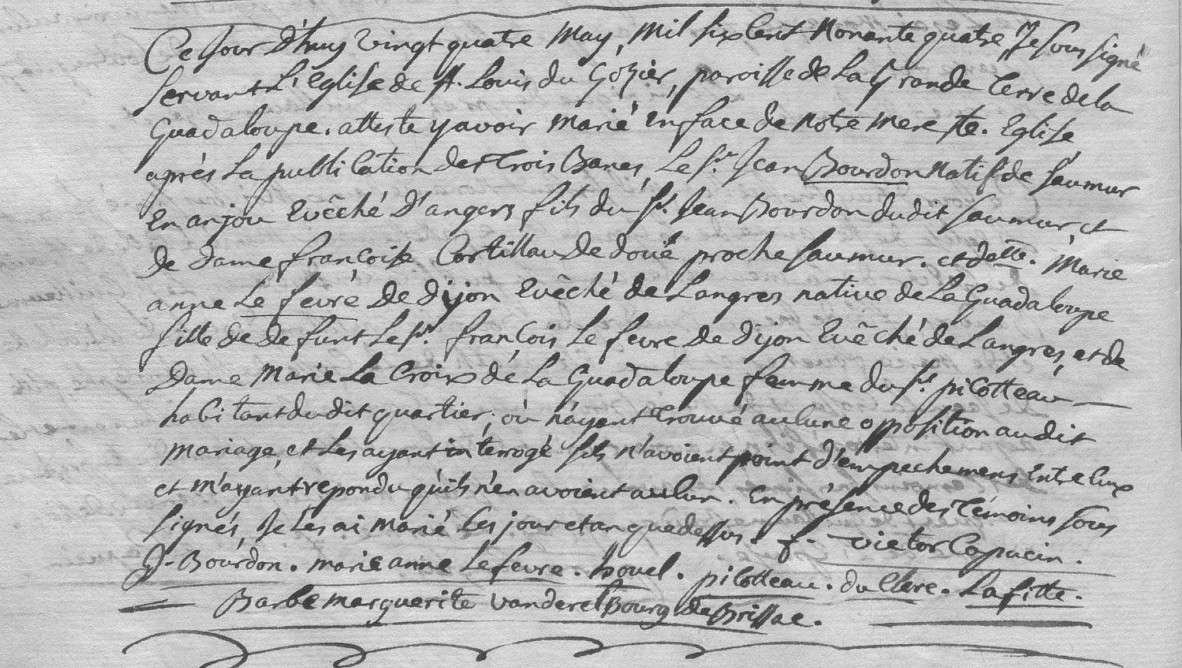 Ce Jour d'huy vingt quatre May, Mil six Cent Nonante quatre Je sous signé
servant L'Eglise de st. Louis du Gozier, paroisse de La Grande Terre de la
Guadaloupe. atteste y avoir Marié En face de notre mere ste. Eglise
après La publication des trois Bancs, Le sr. Jean Bourdon natif de saumur
En anjou Evêché D'angers fils du sr. Jean Bourdon dudit saumur, et
de Dame francoise Cortillau de doüé proche saumur. et delle. Marie
anne Le fevre De dijon Evêché de Langres native de La Guadaloupe
fille de defunt Le sr. françois Le fevre de Dijon Evêché de Langres, et de
Dame Marie La Croix de La Guadaloupe femme du sr. pilotteau
habitant du dit quartier; où n'ayant trouvé aulcune opposition audit
Mariage, et Les ayant interrogé sils n'avoient point d'empechemens Entr'eux
et m'ayant repondu qu'ils n'en avoient aulcun. En présence des Témoins sous
signés, Je Les ai Marié Les jour et an que dessus. f. victor Capucin.
J. Bourdon. marie anne Lefevre. houel. pilotteau. du Clere. Lafitte.
Barbe marguerite vanderelBourg de Brissac.